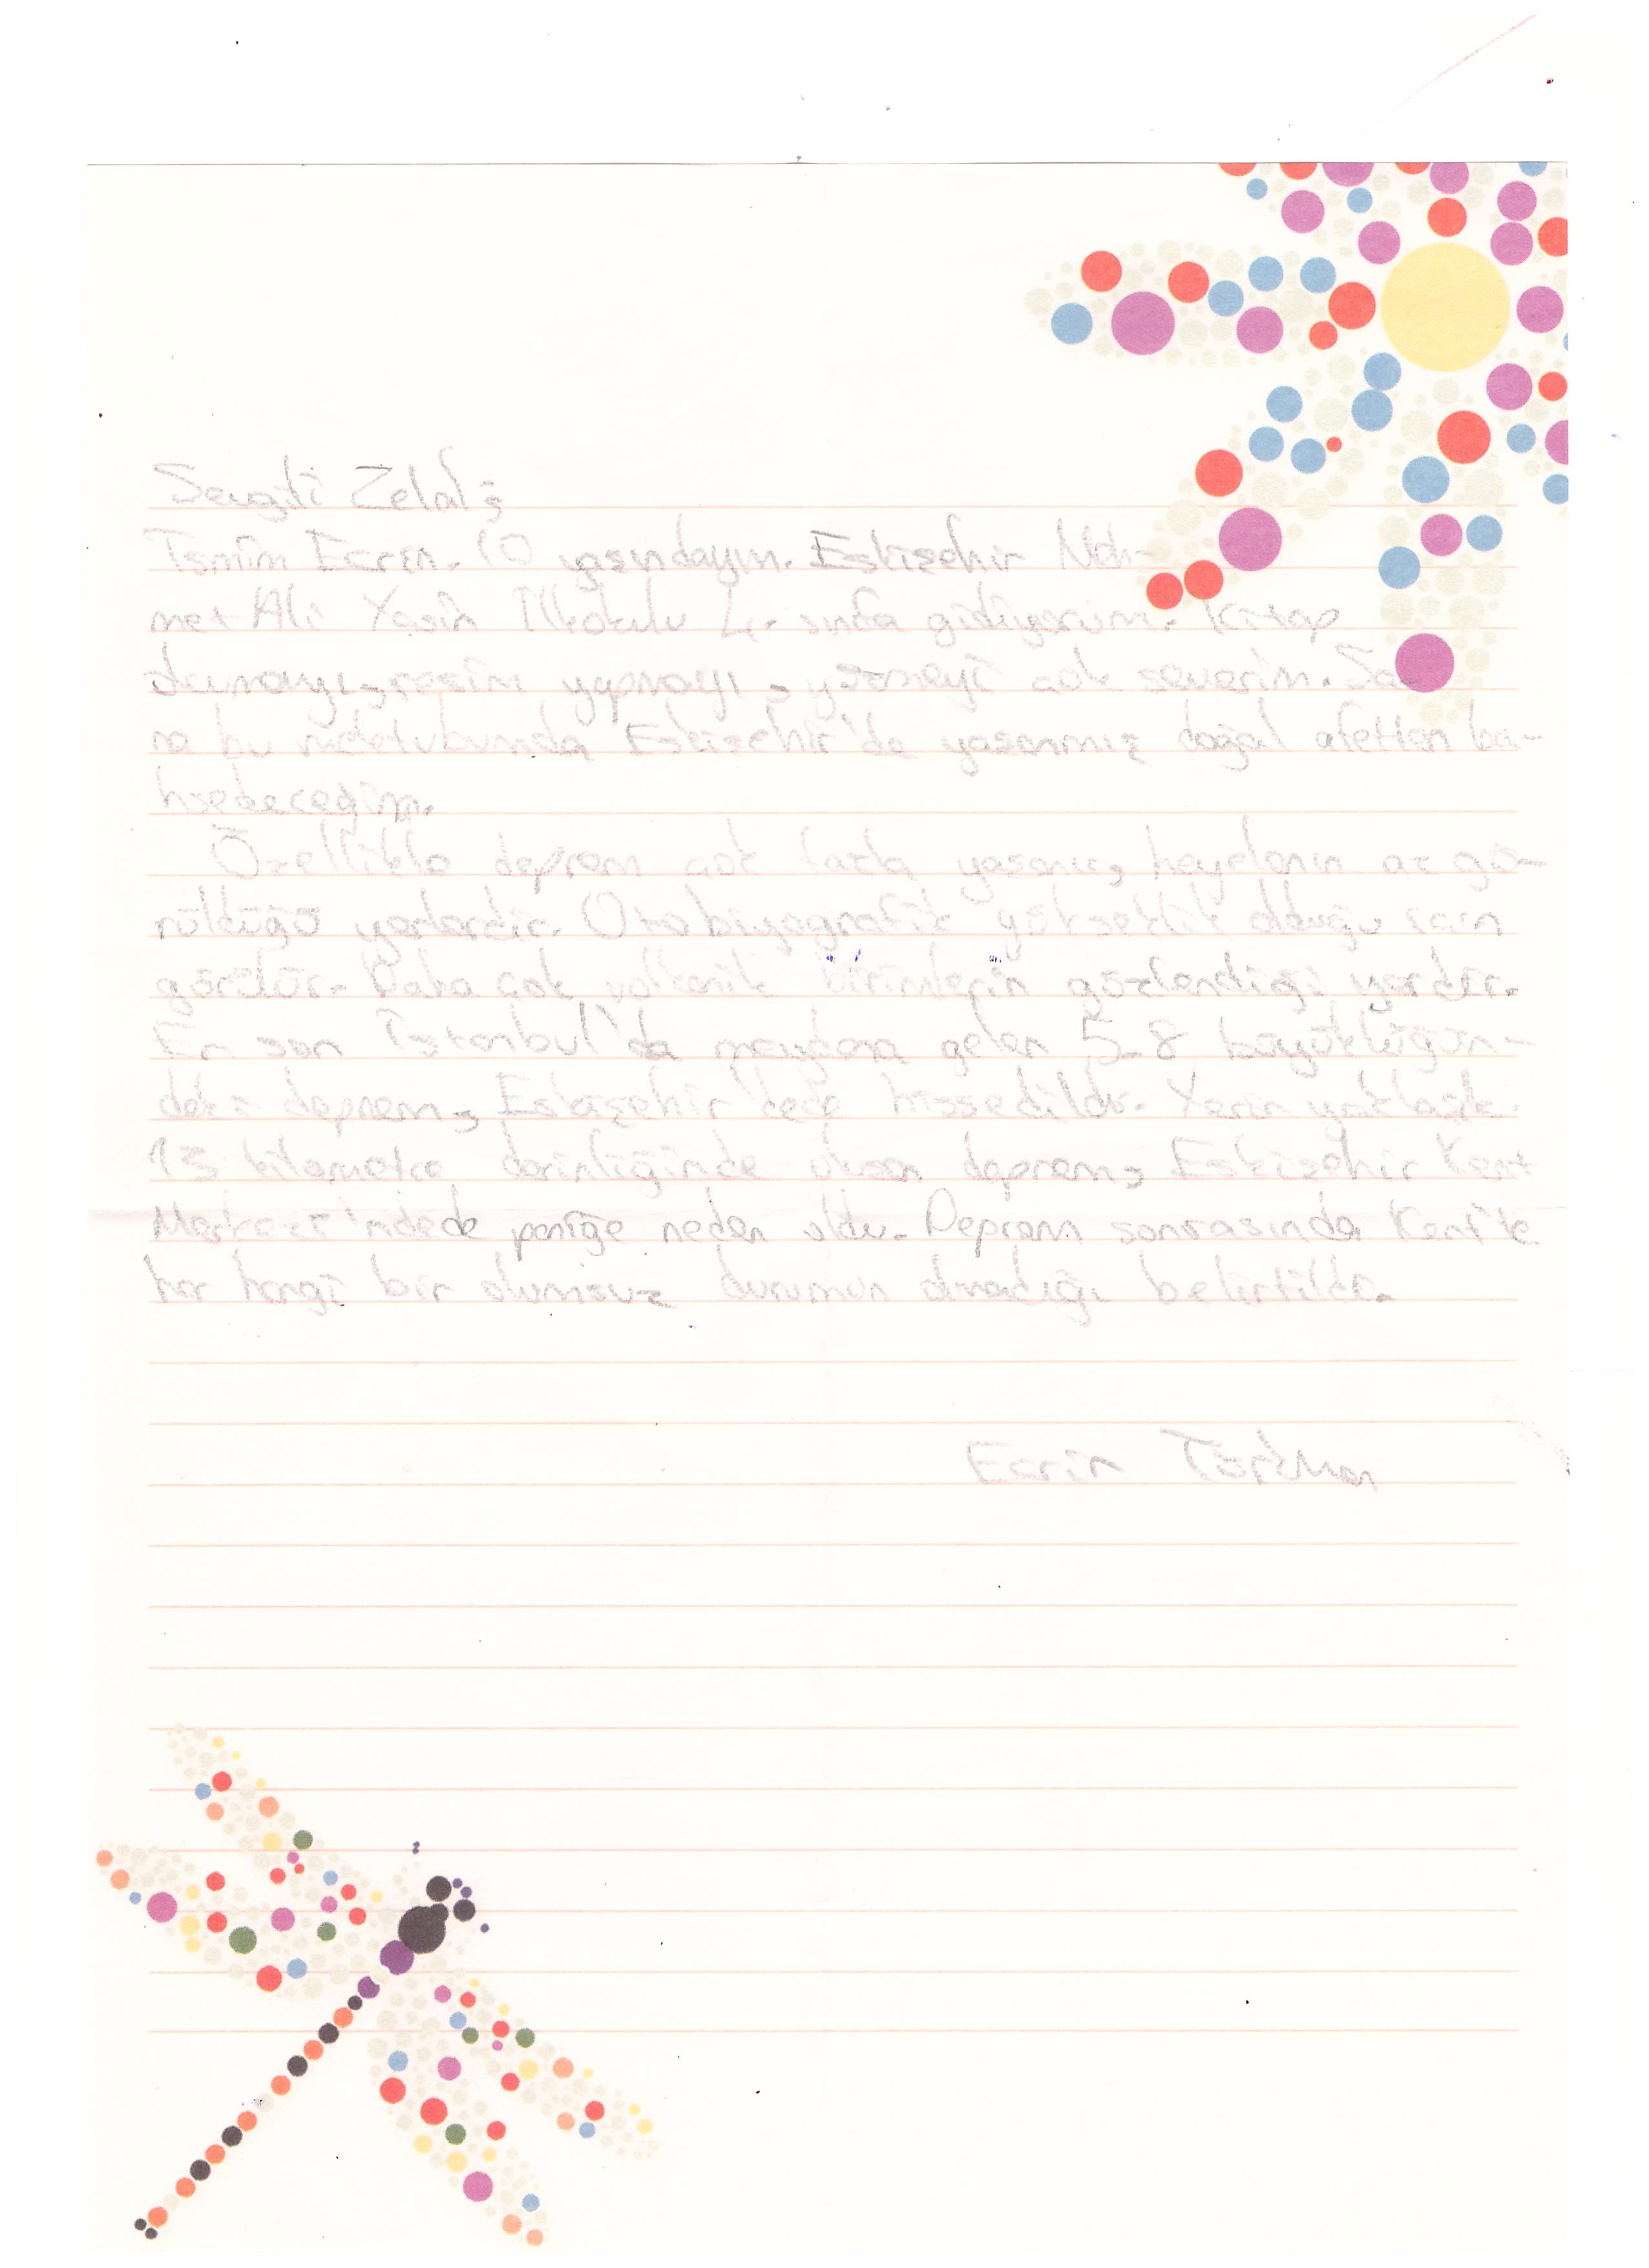 Sevgili Zelal;
İsmim Ecrin. 10 yaşındayım. Eskişehir Meh-
met Ali Yasin İlkokulu 4. sınıfa gidiyorum. Kitap
okumayı, resim yapmayı, yüzmeyi çok severim. Sa-
na bu mektubumda Eskişehir'de yaşanmış doğal afetten ba-
hsedeceğim.
Özellikle deprem çok fazla yaşanış, heyelanın az gö-
rüldüğü yerlerdir. yükseklik olduğu için
görülür. Daha çok volkanik birimlerin gözlendiği yerdir.
En son İstanbul'da meydana gelen 5.8 büyüklüğün-
deki deprem, Eskişehir'dede hissedildi. Yerin yaklaşık
13 kilometre derinliğinde olan deprem, Eskişehir Kent
Merkezi'ndede paniğe neden oldu. Deprem sonrasında Kent'te
her hangi bir olumsuz durumun olmadığı belirtildi.
Ecrin